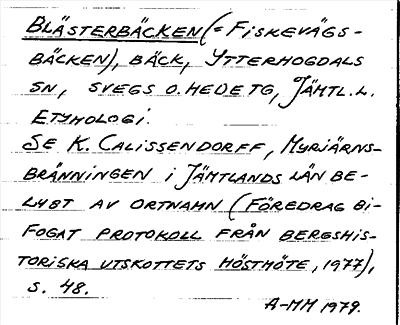 BLÄSTERBÄCKEN (= FISKEVÄGS-
BÄCKEN), BÄCK, YTTERHOGDALS
SN, SVEGS O. HEDE TG, JÄMTL. L.
ETYMOLOGI.
SE K. CALISSENDORFF, MYRJÄRNS-
BRÄNNINGEN I JÄMTLANDS LÄN BE-
LYST AV ORTNAMN (FÖREDRAG BI-
FOGAT PROTOKOLL FRÅN BERGSHIS-
TORISKA UTSKOTTETS HÖSTMÖTE, 1977),
S. 48.
A-MM 1979.